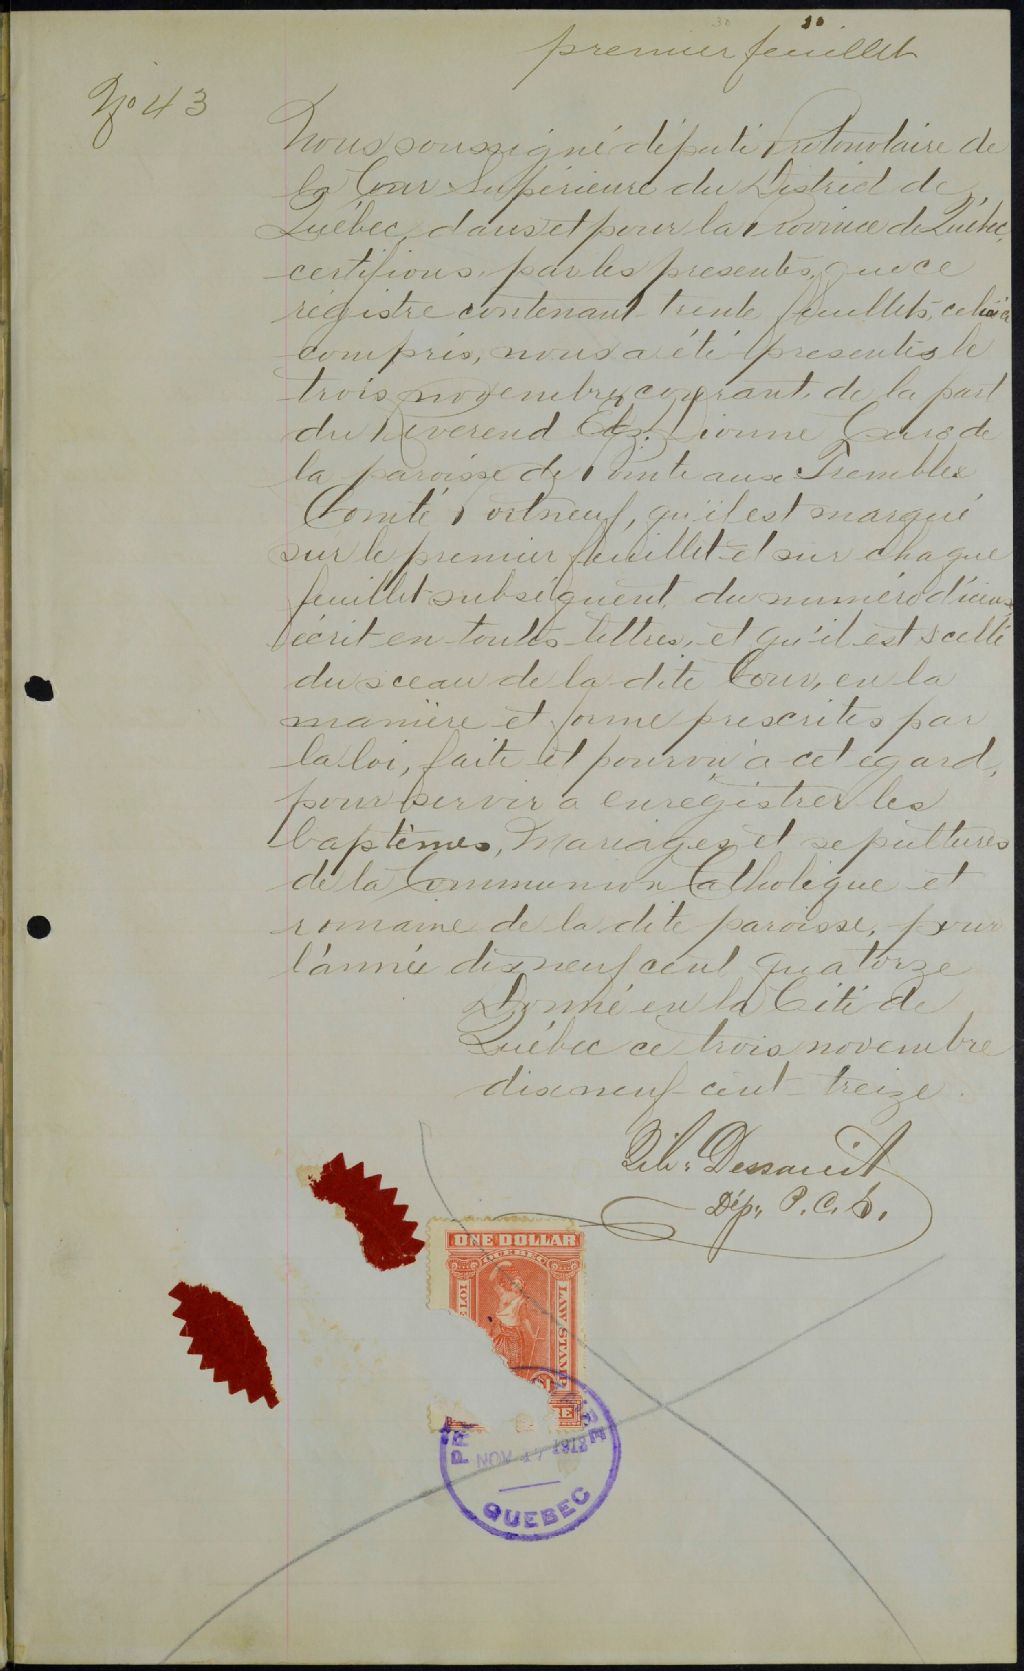 premier feuillet
No 43
Nous soussigné député Protonotaire de
la Cour Supérieure du District de
Québec, dans et pour la Province de Québec,
certifions par les presentes, que ce
régistre contenant trente feuillets, celui ci
compris, nous a été presentés le
trois novembre courant, de la part
du Reverend Dionne Curé de
la paroisse de Pointe aux Trembles
Comté Portneuf, qu'il est marqué
sur le premier feuillet et sur chaque
feuillet subséquent, du numéro d'iceux
écrit en toutes lettres, et qu'il est scellé
du sceau de la dite Cour, en la
manière et forme prescrites par
la loi, faite et pourvu à cet egard,
pour servir a enregistrer les
baptêmes, Mariages et sepultures
de la Communion Catholique et
romaine de la dite paroisse, pour
l'année dix neuf cent quatorze
Donné en la Cité de
Québec ce trois novembre
dix neuf cent treize.
Dessault
Dép. P. C. S.
ONE DOLLAR
QUEBEC
LOI
LAW STAMP
NOV
QUEBEC